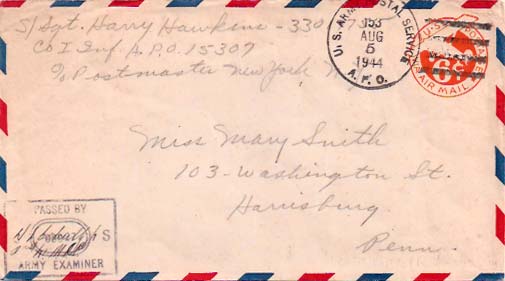 S/Sgt. Harry Hawkins - 330
Co I Inf. A.P.O. 15307
c/o Postmaster New York N.Y.
U.S. ARMY POSTAL SERVICE
AUG
5
1944
A.P.O.
6¢
AIR MAIL
Miss Mary Smith
103-Washington St.
Harrisburg
Penn.
PASSED BY
ARMY EXAMINER